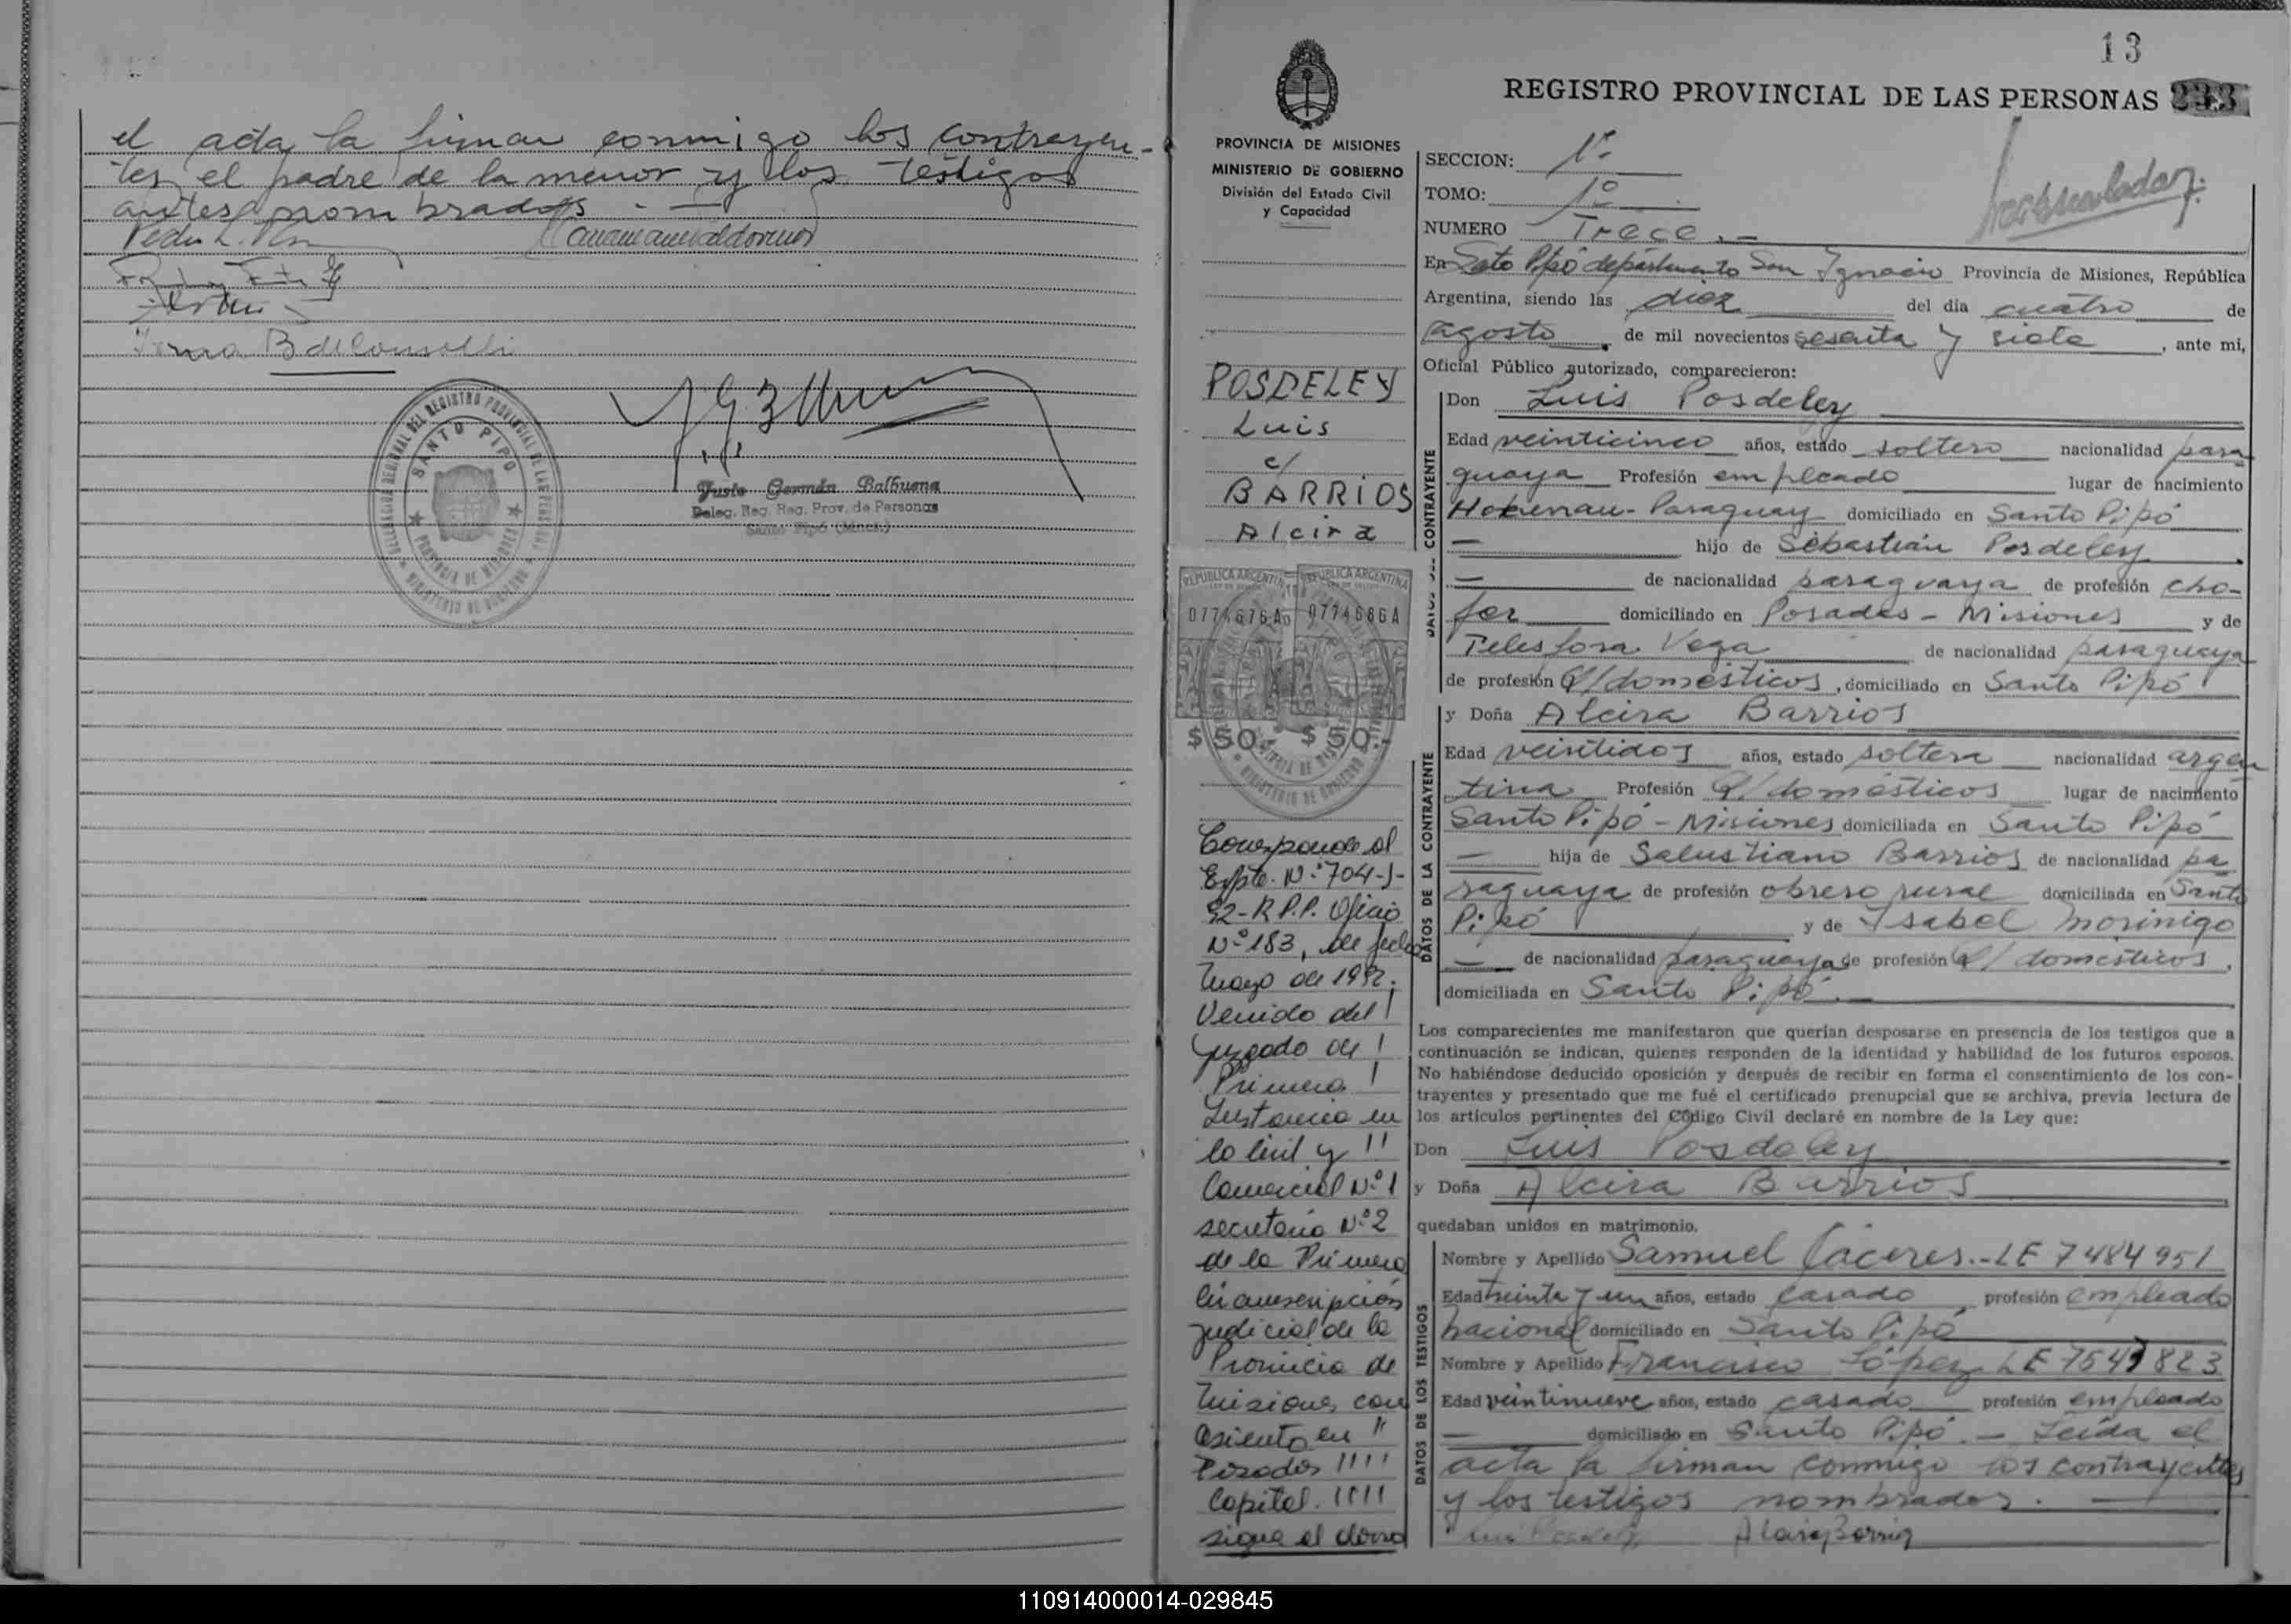 el acta la firman conmigo los contrayen-
tes, el padre de la menor y los testigos
antes nombrados. —
Irma B de
DELEGACION REGIONAL DEL REGISTRO PROVINCIAL DE LAS PERSONAS
SANTO PIPO
PROVINCIA DE MISIONES
MINISTERIO DE GOBIERNO
Justo Germán Balbuena
Deleg. Reg. Reg. Prov. de Personas
Santo Pipó (Mnes.)
13
REGISTRO PROVINCIAL DE LAS PERSONAS 233
PROVINCIA DE MISIONES
MINISTERIO DE GOBIERNO
División del Estado Civil
y Capacidad
POSDELEY
Luis
c/
BARRIOS
Alcira
REPUBLICA ARGENTINA REPUBLICA ARGENTINA
0774676A 0774686A
$ 50.- $ 50.-
Corresponde al
Expte. Nº 704-J-
92-R.P.P. Oficio
Nº 183, de fecha
Mayo de 1992.
Venido del
Juzgado de
Primera
Instancia en
lo Civil y
Comercial Nº 1
secretaria Nº 2
de la Primera
Circunscripción
Judicial de la
Provincia de
Misiones con
asiento en
Posadas
Capital.
sigue al dorso
SECCION: 1ª
TOMO: 1º
NUMERO Trece.-
En Sato Pipó departamento San Ignacio Provincia de Misiones, República
Argentina, siendo las diez del día cuatro de
agosto de mil novecientos sesenta y siete, ante mi,
Oficial Público autorizado, comparecieron:
DATOS DEL CONTRAYENTE
Don Luis Posdeley
Edad veinticinco años, estado soltero nacionalidad para
guaya Profesión empleado lugar de nacimiento
Hohenau-Paraguay domiciliado en Santo Pipó
— hijo de Sebastián Posdeley
— de nacionalidad paraguaya de profesión cho-
fer domiciliado en Posadas - Misiones y de
Telesfora Vega de nacionalidad paraguaya
de profesión Q/domésticos, domiciliado en Santo Pipó
DATOS DE LA CONTRAYENTE
y Doña Alcira Barrios
Edad veintidos años, estado soltera nacionalidad argen
tina Profesión Q/domésticos lugar de nacimiento
Santo Pipó - Misiones domiciliada en Santo Pipó
— hija de Salustiano Barrios de nacionalidad pa
raguaya de profesión obrero rural domiciliada en Santo
Pipó y de Isabel Morinigo
— de nacionalidad paraguaya de profesión Q/domésticos,
domiciliada en Santo Pipó.—
Los comparecientes me manifestaron que querían desposarse en presencia de los testigos que a
continuación se indican, quienes responden de la identidad y habilidad de los futuros esposos.
No habiéndose deducido oposición y después de recibir en forma el consentimiento de los con-
trayentes y presentado que me fué el certificado prenupcial que se archiva, previa lectura de
los artículos pertinentes del Código Civil declaré en nombre de la Ley que:
Don Luis Posdeley
y Doña Alcira Barrios
quedaban unidos en matrimonio.
DATOS DE LOS TESTIGOS
Nombre y Apellido Samuel Cáceres.-LE 7484951
Edad treinta y un años, estado casado profesión empleado
nacional domiciliado en Santo Pipó
Nombre y Apellido Francisco López LE 7547823
Edad veintinueve años, estado casado profesión empleado
— domiciliado en Santo Pipó.— Leída el
acta la firman conmigo los contrayentes
y los testigos nombrados. —
Luis Posdeley Alcira Barrios
110914000014-029845